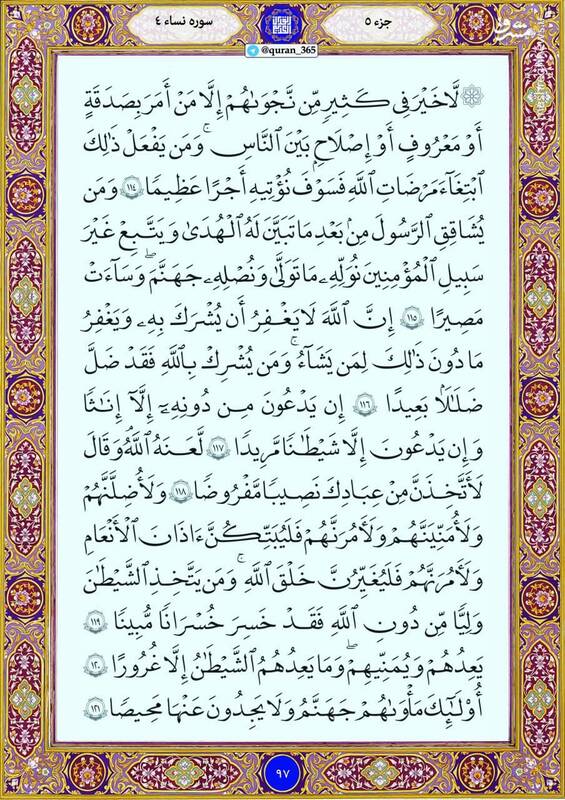 جزء ٥
سوره نساء ٤
@quran_365
مشرق
۞ لَّا خَيْرَ فِي كَثِيرٍ مِّن نَّجْوَىٰهُمْ إِلَّا مَنْ أَمَرَ بِصَدَقَةٍ
أَوْ مَعْرُوفٍ أَوْ إِصْلَٰحٍۭ بَيْنَ ٱلنَّاسِ ۚ وَمَن يَفْعَلْ ذَٰلِكَ
ٱبْتِغَآءَ مَرْضَاتِ ٱللَّهِ فَسَوْفَ نُؤْتِيهِ أَجْرًا عَظِيمًا ١١٤ وَمَن
يُشَاقِقِ ٱلرَّسُولَ مِنۢ بَعْدِ مَا تَبَيَّنَ لَهُ ٱلْهُدَىٰ وَيَتَّبِعْ غَيْرَ
سَبِيلِ ٱلْمُؤْمِنِينَ نُوَلِّهِۦ مَا تَوَلَّىٰ وَنُصْلِهِۦ جَهَنَّمَ ۖ وَسَآءَتْ
مَصِيرًا ١١٥ إِنَّ ٱللَّهَ لَا يَغْفِرُ أَن يُشْرَكَ بِهِۦ وَيَغْفِرُ
مَا دُونَ ذَٰلِكَ لِمَن يَشَآءُ ۚ وَمَن يُشْرِكْ بِٱللَّهِ فَقَدْ ضَلَّ
ضَلَٰلًۢا بَعِيدًا ١١٦ إِن يَدْعُونَ مِن دُونِهِۦٓ إِلَّآ إِنَٰثًا
وَإِن يَدْعُونَ إِلَّا شَيْطَٰنًا مَّرِيدًا ١١٧ لَّعَنَهُ ٱللَّهُ ۘ وَقَالَ
لَأَتَّخِذَنَّ مِنْ عِبَادِكَ نَصِيبًا مَّفْرُوضًا ١١٨ وَلَأُضِلَّنَّهُمْ
وَلَأُمَنِّيَنَّهُمْ وَلَءَامُرَنَّهُمْ فَلَيُبَتِّكُنَّ ءَاذَانَ ٱلْأَنْعَٰمِ
وَلَءَامُرَنَّهُمْ فَلَيُغَيِّرُنَّ خَلْقَ ٱللَّهِ ۚ وَمَن يَتَّخِذِ ٱلشَّيْطَٰنَ
وَلِيًّا مِّن دُونِ ٱللَّهِ فَقَدْ خَسِرَ خُسْرَانًا مُّبِينًا ١١٩
يَعِدُهُمْ وَيُمَنِّيهِمْ ۖ وَمَا يَعِدُهُمُ ٱلشَّيْطَٰنُ إِلَّا غُرُورًا ١٢٠
أُو۟لَٰٓئِكَ مَأْوَىٰهُمْ جَهَنَّمُ وَلَا يَجِدُونَ عَنْهَا مَحِيصًا ١٢١
٩٧